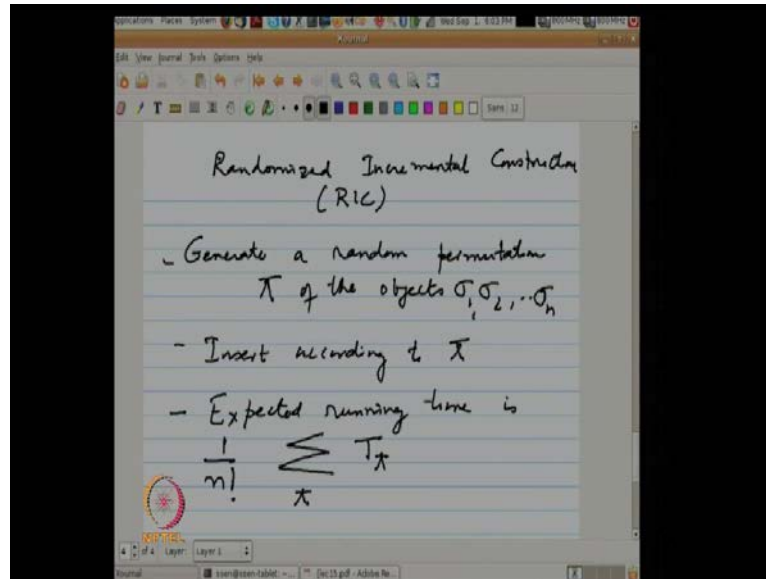 Applications Places System Wed Sep 1, 6:03 PM 800 MHz 800 MHz
Xournal
Edit View Journal Tools Options Help
Sans 12
Randomized Incremental Construction
(RIC)
- Generate a random permutation
π of the objects σ1, σ2, ..σn
- Insert according to π
- Expected running time is
1/n! Σπ Tπ
NPTEL
4 of 4 Layer: Layer 1
Xournal ssen@ssen-tablet: ~... [lec15.pdf - Adobe Re...